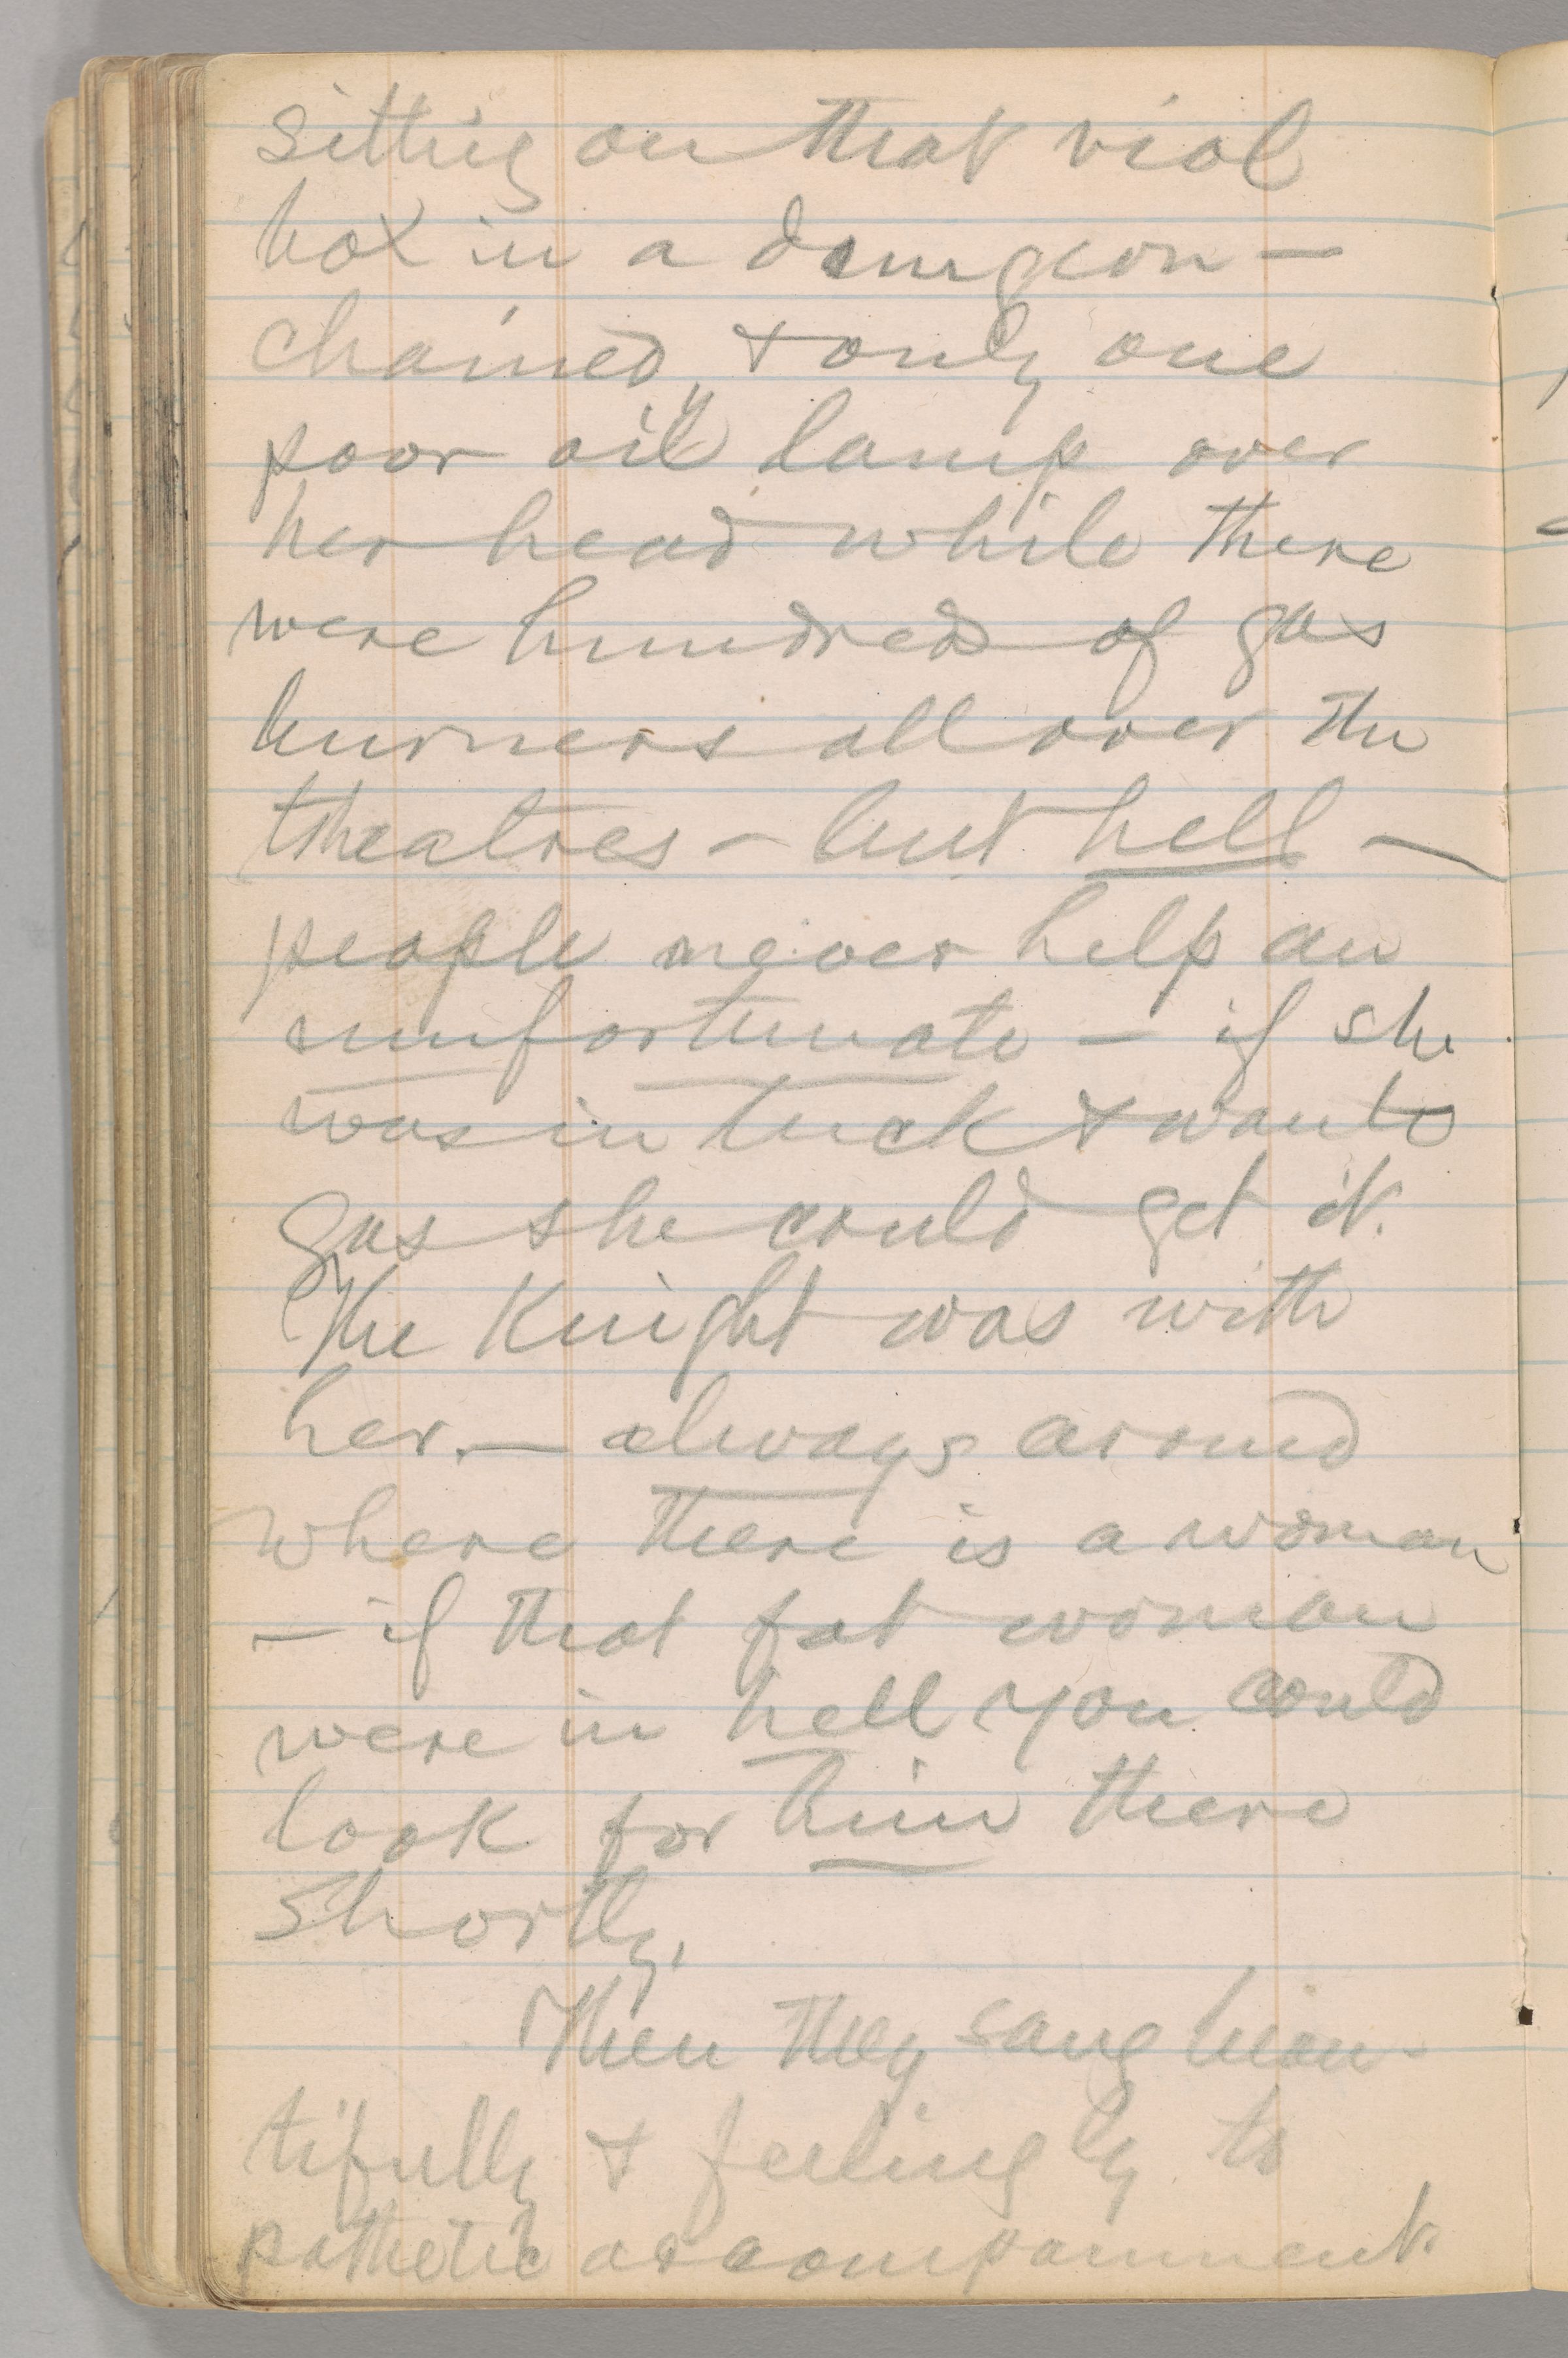 sitting on that viol
box in a dungeon —
chained, & only one
poor oily lamp over
her head while there
were hundreds of gas
burners all over the
theatres — but hell —
people never help an
unfortunate — if she
was in luck & wants
gas she could get it.
The Knight was with
her. — always around
where there is a woman
— if that fat woman
were in hell you could
look for him there
shortly.
Then they sang beau-
tifully & feelingly to
pathetic accompaniment.